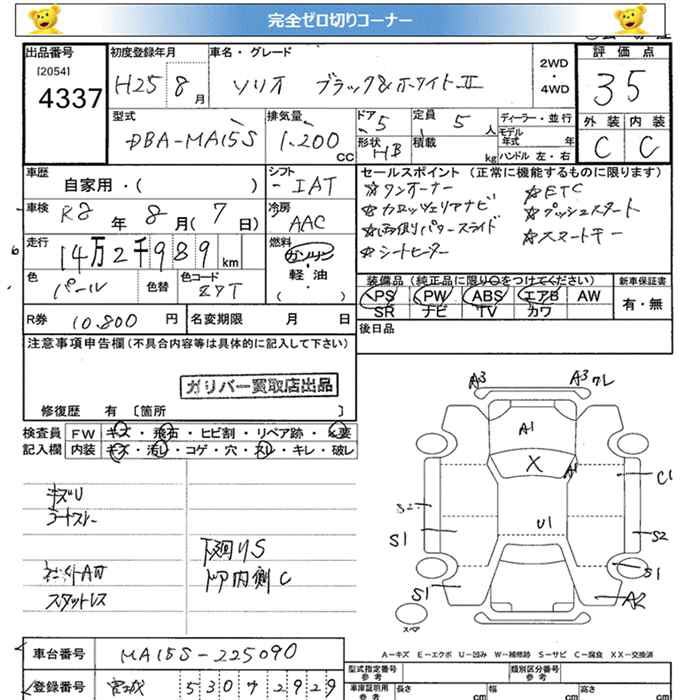 完全ゼロ切りコーナー
出品番号
[2054]
4337
初度登録年月
H25 8月
車名・グレード
ソリオ ブラック&ホワイトII
2WD
・
4WD
評価点
35
外装 内装
C C
型式
DBA-MA15S
排気量
1.200
CC
ドア
5
形状
HB
定員
5人
積載
kg
ディーラー・並行
モデル年式 年
ハンドル 左・右
車歴
自家用・( )
シフト
IAT
セールスポイント (正常に機能するものに限ります)
☆ワンオーナー
☆ETC
☆カロッツェリアナビ
☆プッシュスタート
☆両側パワースライド
☆スマートキー
☆シートヒーター
車検
R8年8月(7日)
冷房
AAC
走行
14万2千989km
燃料
ガソリン
軽・油
( )
色
パール
色替
色コード
Z7T
装備品 (純正品に限り○をつけてください)
PS PW ABS エアB AW
SR ナビ TV カワ
新車保証書
有・無
R券 10.800 円
名変期限 月 日
後日品
注意事項申告欄(不具合内容等は具体的に記入して下さい)
ガリバー買取店出品
修復歴 有 〔箇所 〕
検査員 FW キズ・飛石・ヒビ割・リペア跡・×要
記入欄 内装 キズ・汚レ・コゲ・穴・スレ・キレ・破レ
キズU
コートスレー
スタットレス
下廻りS
ドア内側C
A3
A3 ワレ
A1
X
A1
C1
S2
U1
S1
S2
S1
S1
A2
スペア
A－キズ E－エクボ U－凹み W－補修跡 S－サビ C－腐食 XX－交換済
車台番号 MA15S-225090
登録番号 宮城 530 ワ 2929
型式指定番号
参考
類別区分番号
参考
車庫証明用
参考
長さ cm
幅 cm
高さ cm